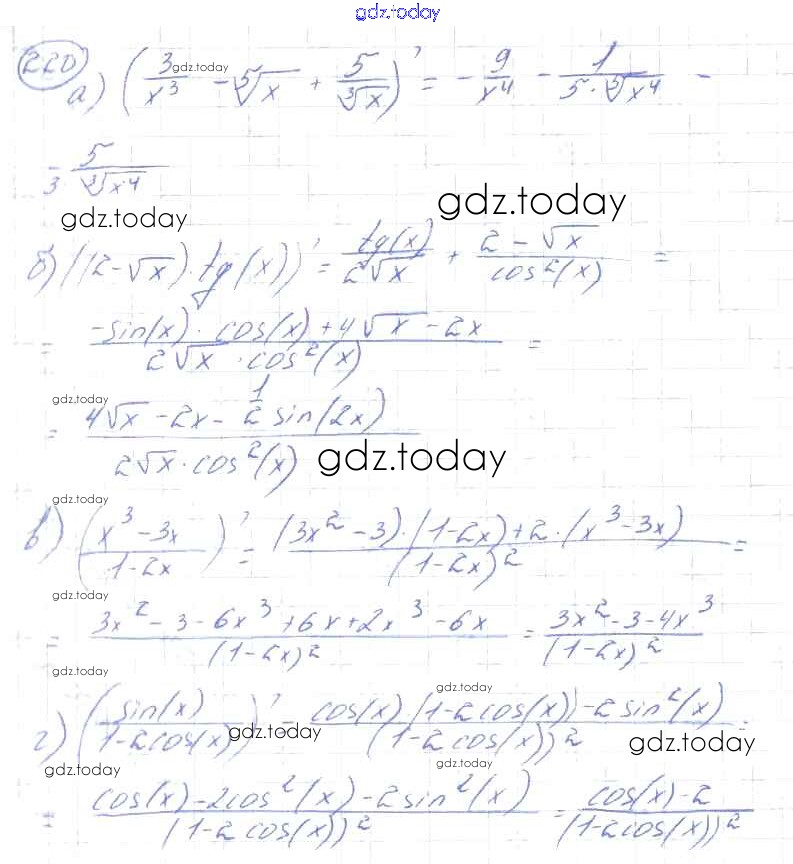 gdz.today
220
а) (3/x³ - ⁵√x + 5/³√x)' = -9/x⁴ - 1/(5·⁵√x⁴) -
gdz.today
- 5/(3·³√x⁴)
gdz.today
gdz.today
б) ((2-√x)·tg(x))' = tg(x)/(2√x) + (2-√x)/cos²(x) =
= (-sin(x)·cos(x)+4√x-2x)/(2√x·cos²(x)) =
gdz.today
= (4√x-2x-1/2 sin(2x))/(2√x·cos²(x))
gdz.today
gdz.today
в) ((x³-3x)/(1-2x))' = ((3x²-3)·(1-2x)+2·(x³-3x))/(1-2x)² =
gdz.today
= (3x²-3-6x³+6x+2x³-6x)/(1-2x)² = (3x²-3-4x³)/(1-2x)²
gdz.today
gdz.today
г) (sin(x)/(1-2cos(x)))' = (cos(x)(1-2cos(x))-2sin²(x))/(1-2cos(x))² =
gdz.today
gdz.today
gdz.today
gdz.today
= (cos(x)-2cos²(x)-2sin²(x))/(1-2cos(x))² = (cos(x)-2)/(1-2cos(x))²